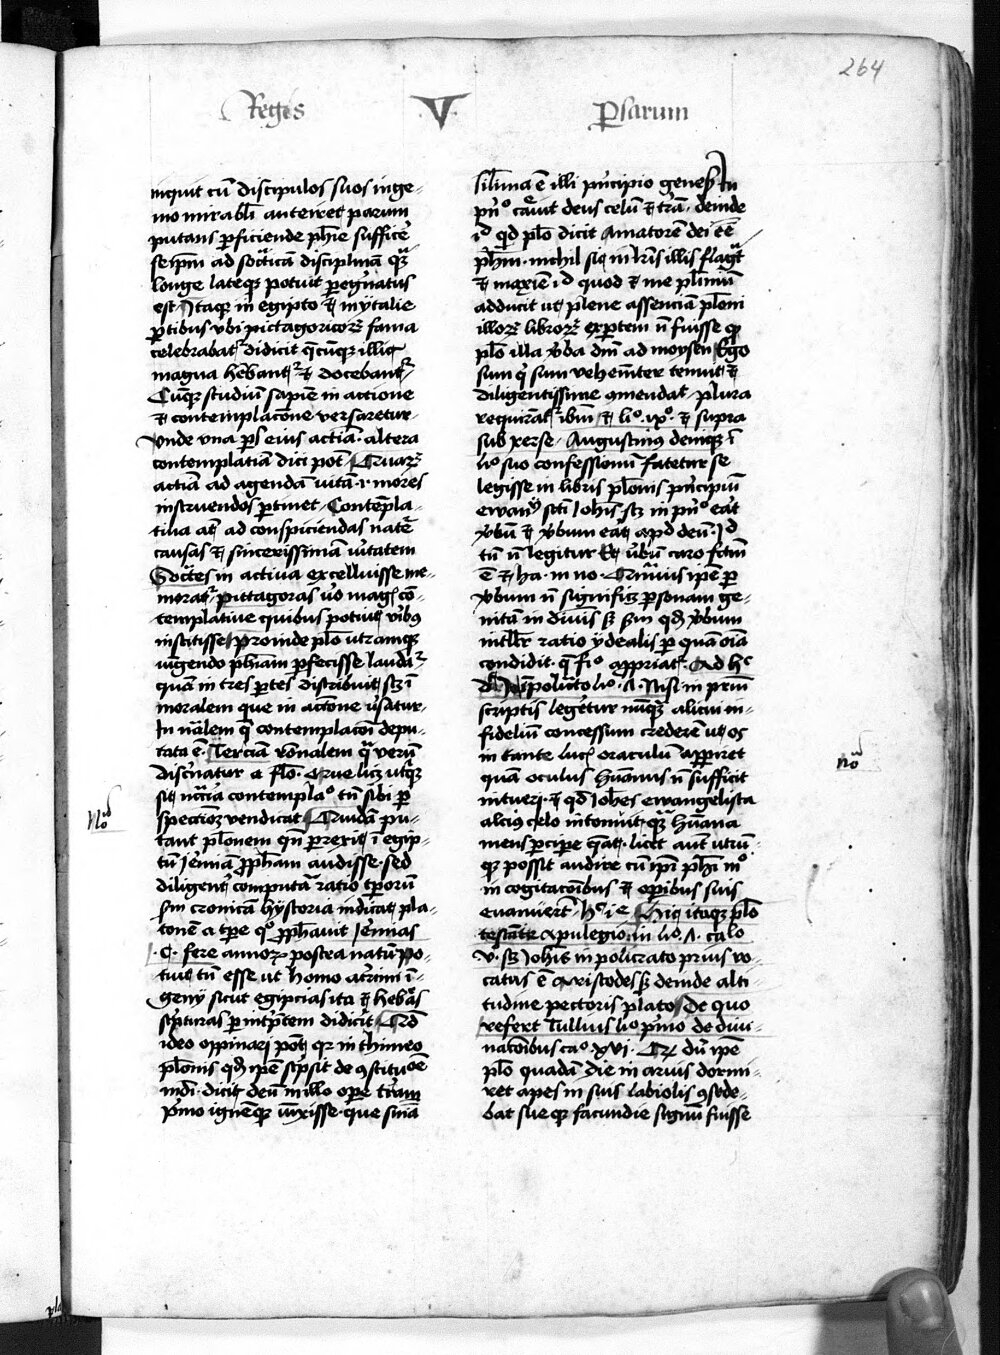 264
Regis V Psarum
inquit cū discipulos suos inge-
nio mirabli anteiret parum
putans ꝑficiende phīe sufficē
seipm ad socᵃticā disciplinā qᵃꝫ
longe lateqꝫ potuit ꝑegͥnatus
est Itaqꝫ in egipto ⁊ in ytalie
ꝑtibus vbi pictagoricoꝝ fama
celebrabatᷣ didicit q̄cūqꝫ illic
magna hēbantᷣ ⁊ docebantᷣ
Cūqꝫ studiū sapiēe in actione
⁊ contemplacōne versaretur
vnde vna ꝑs eius actiā altera
contemplatiā dici potꝰ Quaꝝ
actiā ad agendā uitā ⁊ mores
instruendos ꝑtinet Contēpla-
tiua aūt ad conspiciendas natē
causas ⁊ sincerissimā uͥtatem
Socᵃtes in actiua excelluisse me-
moratᷣ pittagoras uͦo magꝭ cō-
templatiue quibus potuit vͥbꝰ
institisse Proinde plō utramqꝫ
iūgendo phīam ꝑfecisse laudatᷣ
quā in tres ꝑtes distribuit scꝫ ī
moralem que in actōne ūsatur
In nālem q̄ contemplacōi depu-
tata ē Terciā rōnalem qᵃ verū
discͥnatur a flō Que licꝫ utͥqꝫ
sit nc̄cia contemplaᵒ tn̄ sibi ꝑ
specioꝫ vendicat Quidā pu-
tant plōnem qn̄ ꝑrexit ī egip-
tū Jērmiā ꝓphām audisse sed
diligent᷒ computā ratio tꝑorū
Sm̄ cronicā hystoria indicat pla-
tonē a tꝑe qͦ ꝓphauit Jēmias
C fere annoꝝ postea natū po-
tius tn̄ esse ut homo acͤrimi ī-
genij sicut egipcias ita ⁊ hebᵃas
scͥpturas ꝑ intͥp̄tem didicit Qđ
ideo oppinari potꝰ qꝛ in thimeo
plōnis qđ ipē sc̄psit de ꝯstituōe
mdī dicit deū in illo oꝑe trām
pͥmo ignēqꝫ iūxisse que sn̄ia
silima ē illi pͥncipio genesis In
pnͥᵒ cᵃuit deus celū ⁊ trā deinde
id qđ plō dicit Amatorē dei ēē
phm̄ nichil sic in lrīs illis flagͣt
⁊ maxie id quod ⁊ me plimū
adducit ut plene assenciā plōni
illoꝝ libroꝝ exꝑtem n̄ fuisse qꝫ
plō illa vͤba dn̄i ad moysen Ego
sum qͥ sum vehemēter tenuit ⁊
diligentissime ꝯmendat plura
requirātᷣ ibm̄ ⁊ liᵒ ixᵒ ⁊ supra
sub xerse Augustinꝰ deniqꝫ ī
liᵒ suo confessionū fatetur se
legisse in libris plōnis pͥncipiū
ewanᵍͥ sc̄ti Johīs scꝫ in pnͥᵒ erāt
vͤbū ⁊ vͤbum erāt apd deū Id
tn̄ n̄ legitur Et vͤbū caro fc̄m
ē ⁊ ha in no Quīuis ipē ꝑ
vͤbum n̄ significꝫ ꝑsonam ge-
nitā in diuīs sꝫ Sm̄ qđ vͤbum
intllr̄ ratio ydealis ꝑ quā oīa
condidit q̄ fiͦᵒ appriatᷣ Ad hᶜ
ꝺ in policᵃto liᵒ A Nisi in prīm
scriptis legetur nūqᵃ alicui in-
fideliū concessum credere ut os
in tante lucꝭ oraculū appiret
quā oculus hūanus n̄ sufficit
intueri ⁊ qđ Johēs ewangelista
altiꝰ celo intonuit qᵃ hūana
mens ꝑcipe qᵃt licet aut utrū
qꝫ possit audire cū ipī phī īᵒ
in cogitacōibus ⁊ oꝑibus suis
euanuert hᶜ i e Hic itaqꝫ plō
testante Apulegio in liᵒ A calo
V sꝫ Johīs in policrato prius vo-
catus ē aristodes sꝫ deinde alti-
tudine pectoris plato De quo
refert Tullius liᵒ pͥmo de diui-
nacōibus caᵒ xvi Qꝛ dū ipē
plō quadā die in aruis dormi-
ret apes in suis labiolis ꝯsede-
bāt sueqꝫ facundie signū fuisse
Noᵃ
noᵃ